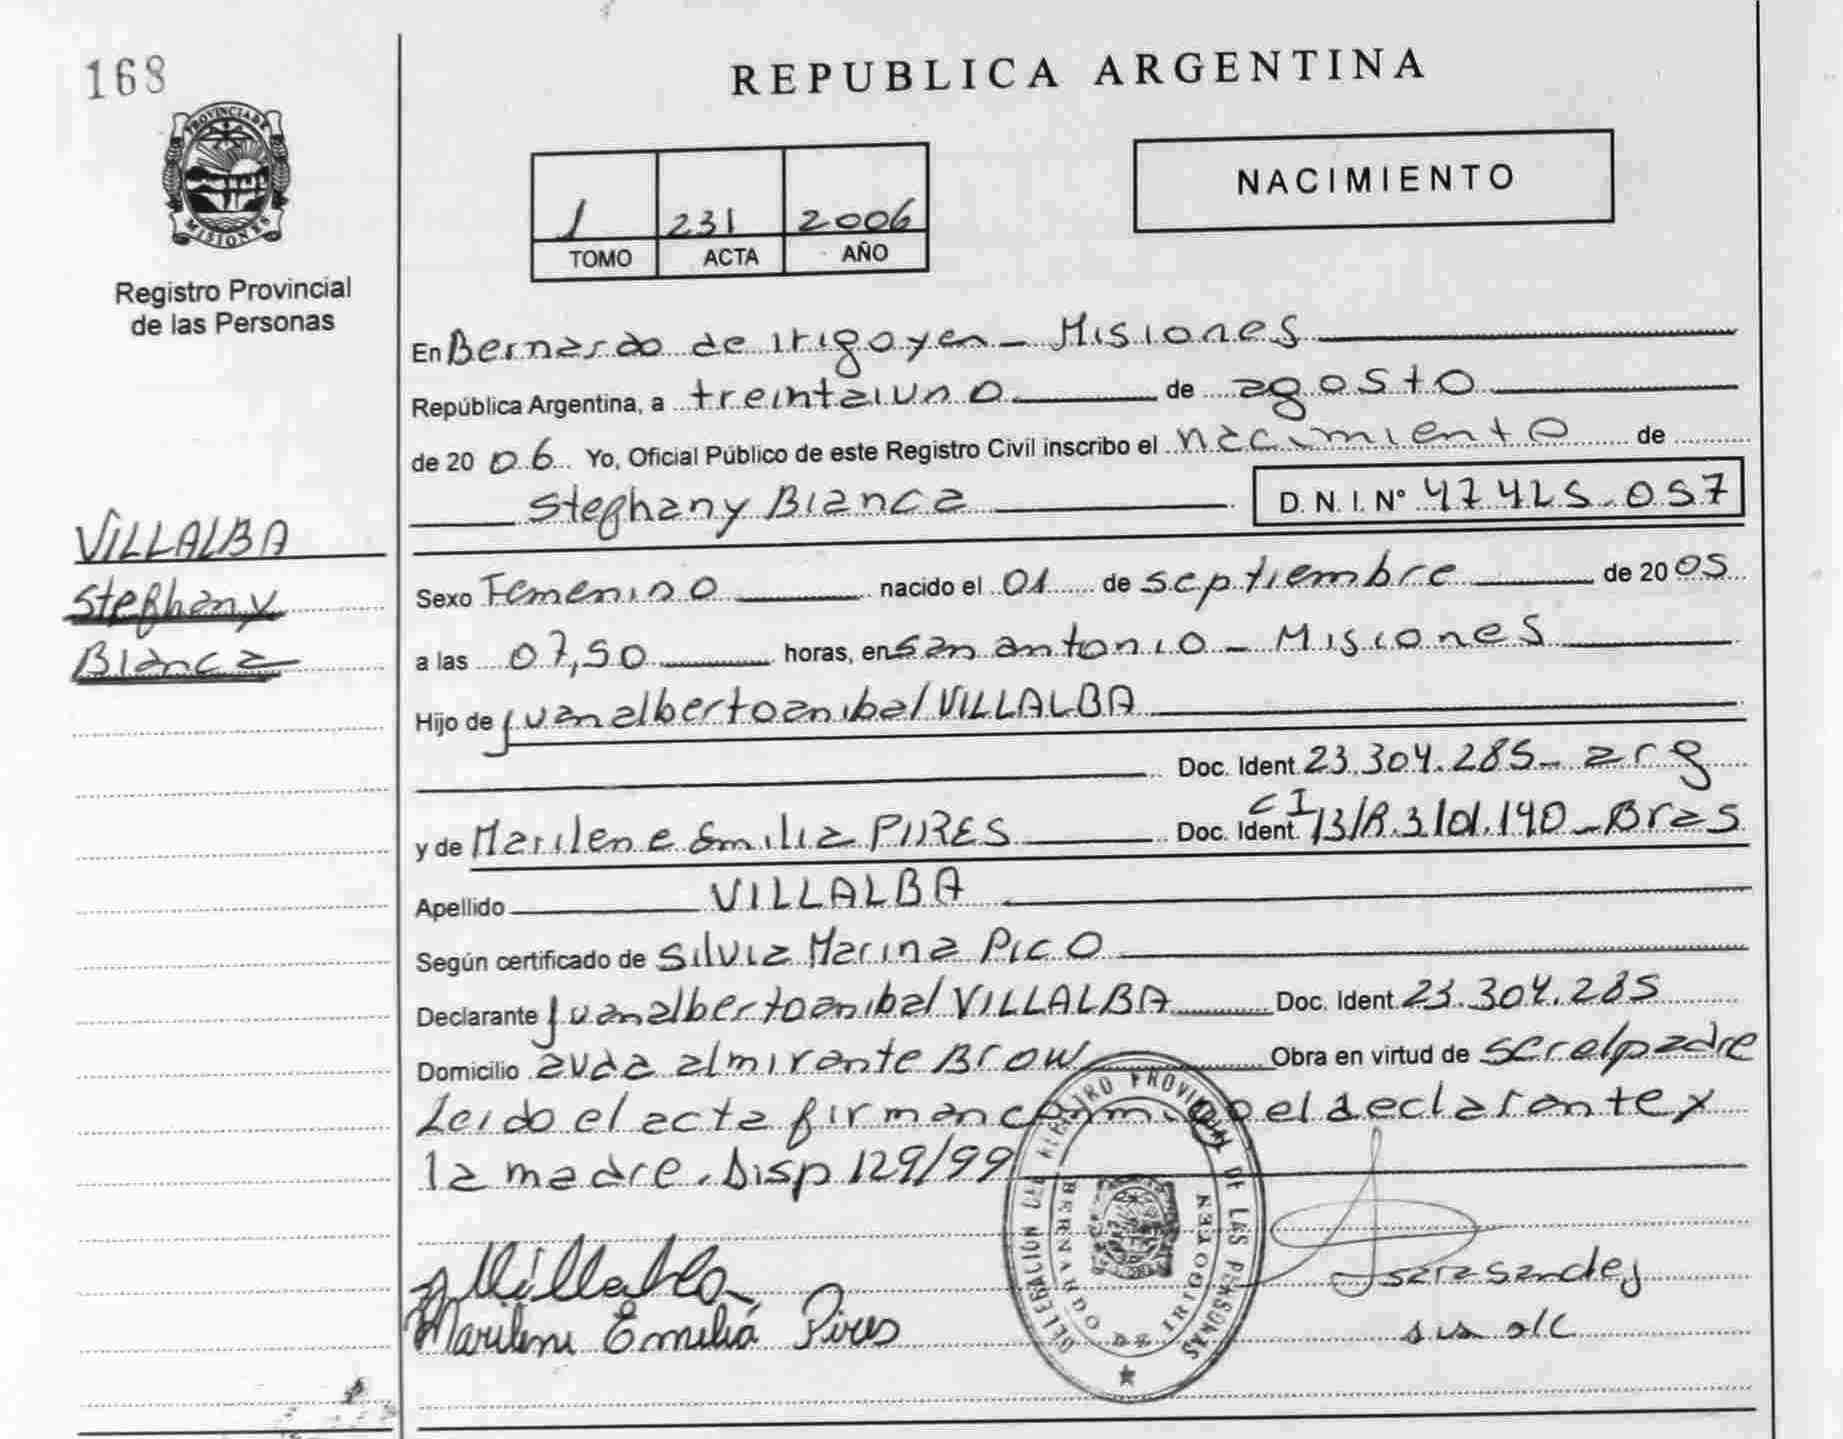 168
PROVINCIA DE
MISIONES
Registro Provincial
de las Personas
VILLALBA
Stephany
Bianca
REPUBLICA ARGENTINA
1 231 2006
TOMO ACTA AÑO
NACIMIENTO
En Bernardo de irigoyen - Misiones
República Argentina, a treintaiuno de agosto
de 2006 Yo, Oficial Público de este Registro Civil inscribo el nacimiento de
Stephany Bianca D. N. I. N° 47.425.057
Sexo Femenino nacido el 01 de septiembre de 2005
a las 07,50 horas, en san antonio - Misiones
Hijo de juan alberto anibal VILLALBA
Doc. Ident. 23.304.285 - arg
y de Marilene Emilia PIRES Doc. Ident. CI 13/R.3101.140 - Bras
Apellido VILLALBA
Según certificado de Silvia Marina Pico
Declarante juan alberto anibal VILLALBA Doc. Ident 23.304.285
Domicilio avda almirante Brow Obra en virtud de ser el padre
Leido el acta firman conmigo el declarante y
la madre. Disp 129/99
DELEGACION DEL REGISTRO PROVINCIAL DE LAS PERSONAS
BERNARDO DE IRIGOYEN
Villalba
Marilene Emilia Pires
a/c